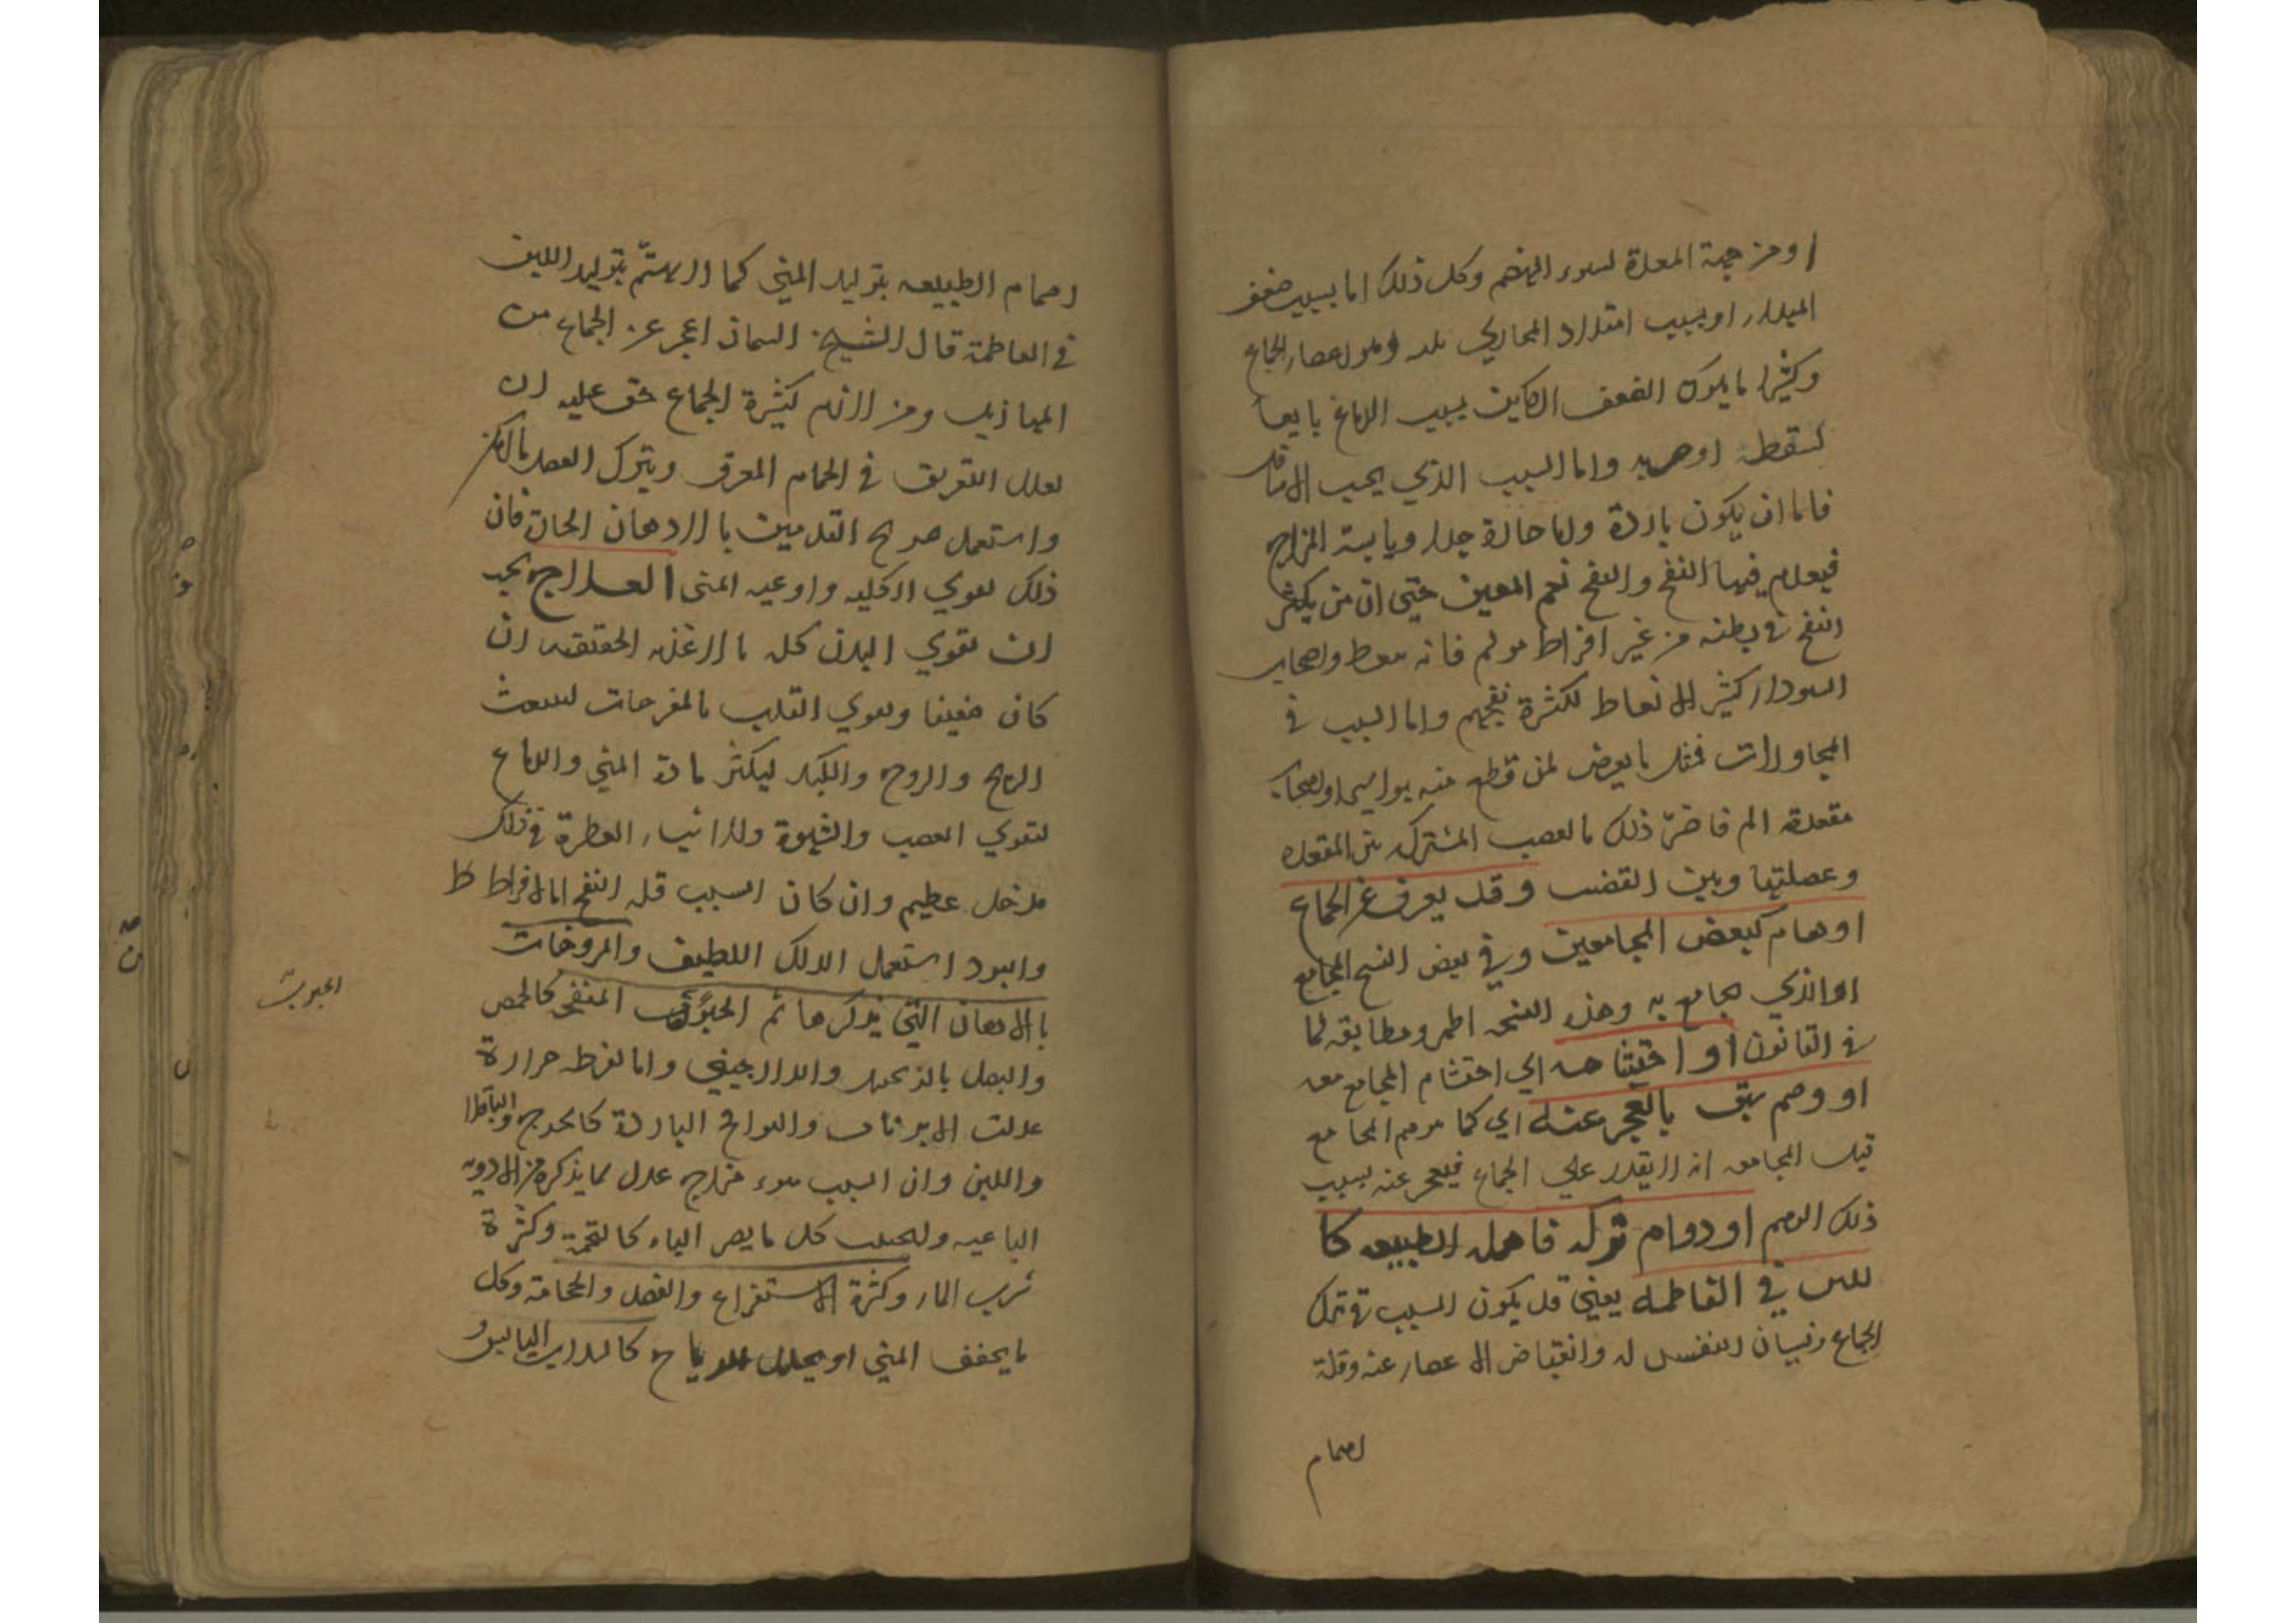 او من جهة المعدة لسوء الهضم وكل ذلك اما بسبب ضعف
المبدا او بسبب انسداد المجاري
وكثيرا ما يكون الضعف الكاين بسبب الدماغ تابعا
لسقطة او ضربة واما السبب الذي بحسب الاسافل
فاما ان يكون باردة واما حارة جدا ويابسة المزاج
فيعدم فيها النفخ والنفخ نعم المعين حتى ان من يكثر
النفخ في بطنه من غير افراط مولم فانه ينعظ واصحاب
السوداء كثير الانعاظ لكثرة نفخهم واما السبب في
المجاورات فمثل ما يعرض لمن قطع منه بواسير او اصاب
مقعدته الم فاضر ذلك بالعصب المشترك بين المقعدة
وعضلتها وبين القضيب وقد يعرض عن الجماع
اوهام كبعض المجامعين وفي بعض النسخ المجامع
او الذي يجامع به وهذه النسخة اظهر ومطابقة لما
في القانون او احتشامه اي احتشام المجامع معه
او وهم سبق بالعجز عنه اي كما يوهم المجامع
قبل المجامعة انه لا يقدر علي الجماع فيعجز عنه بسبب
ذلك الوهم او دوام تركه فاهمله الطبيعة كا
للبن في الفاطمة يعني قد يكون السبب في ترك
الجماع نسيان النفس له وانقباض الاعضاء عنه وقلة
اهتمام
اهتمام الطبيعه بتوليد المني كما لا يهتم بتوليد اللبن
في الفاطمة قال الشيخ السمان اعجز عن الجماع من
المهازيل ومن اتهم كثيرة الجماع حق عليه ان
يقلل التعريق في الحمام المعرق ويترك الفصد بالاكثر
واستعمل مروخ القدمين بالادهان الحارة فان
ذلك يقوي الكلية واوعيه المني العلاج يجب
ان يقوي البدن كله بالاغذية ان
كان ضعيفا ويقوي القلب بالمفرحات لينبعث
الريح والروح والكبد ليكثر مادة المني والدماغ
لتقوي العصب والشهوة وللاشياء العطرة في ذلك
مدخل عظيم وان كان السبب قلة النفخ اما لافراط
والبرد استعمل الدلك اللطيف والمروخات
بالادهان التي يذكرها ثم الحبوب المنفخه كالحمص
الحبوب
والبصل بالزنجبيل والدارجيني واما لفرط حرارة
عدلت والفواكه الباردة كالخوخ والباقلا
واللبن وان السبب سوء مزاج عدل بما يذكره من الادويه
الباهيه وليجتنب كل ما يضر الباه كالتخمة وكثرة
شرب الماء وكثرة الاستفراغ والفصد والحجامة وكل
ما يجفف المني او يحلل الرياح كالسداب اليابس و